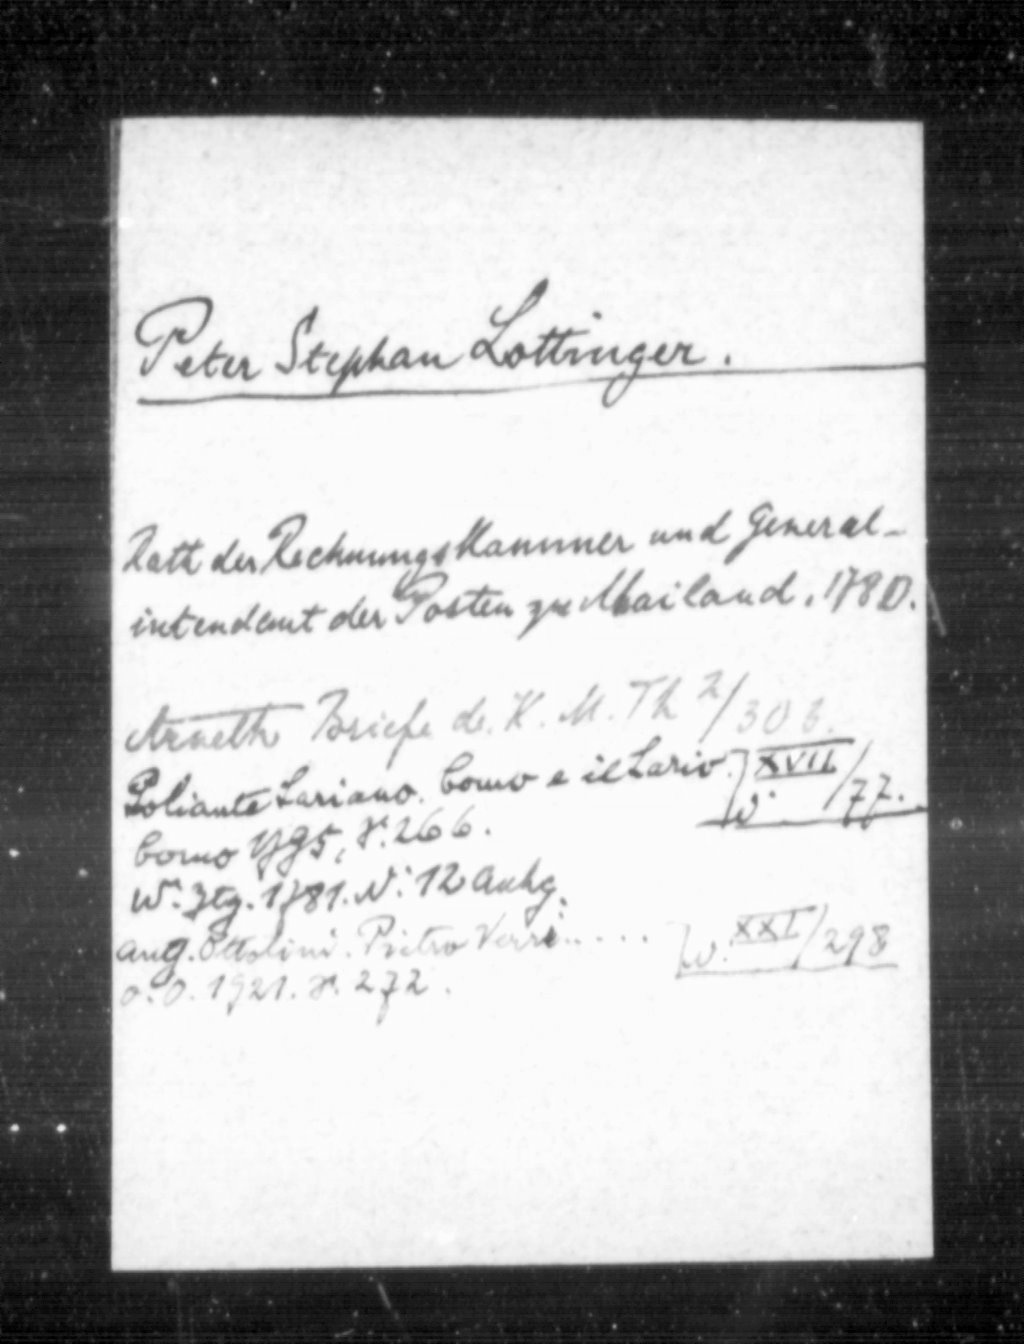 Peter Stephan Lottinger.
Rath der Rechnungskammer und General-
intendant der Posten zu Mailand. 1780.
Arneth Briefe d. K. M. Th 2/306.
Poliante Lariano. Como e il Lario. W. XVII/77.
Como 1795, S. 266.
Wr. Ztg. 1781. Nr. 12 Anhg.
Aug. Ottolini. Pietro Verri..... W. XXI/298
o. O. 1921. S. 272.